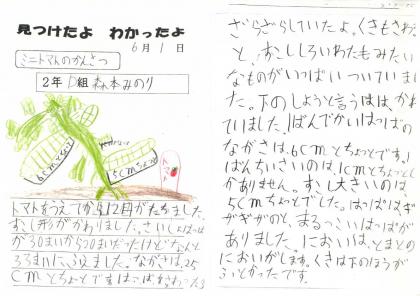 見つけたよ わかったよ
6月1日
ミニトマトのかんさつ
2年D組 森本みのり
6cmとちょっと
5cmちょっと
トマトをうえてから12日がたちました。
すこし形がかわりました。さいしょはは
が30まいから20まいだったけどなんと
33まいに、なりました。ながさは、25
cmとちょっとです。はっぱをさわったら
ざらざらしていたよ。くきもさわる
と、すこししろいわたもみたい
なものがいっぱいついていまし
た。下のしようと言うはは、かれ
ていました。1ばんでかいはっぱの
ながさは、6cmとちょっとです。1
ばんちいさいのは、1cmとちょっとし
かありません。すこし大きいのは、
5cmちょっとでした。はっぱはぎ
ざぎざのと、まるっこいはっぱが
ありました。においは、とまとの
においがします。くきは下のほうが
ふとかったです。